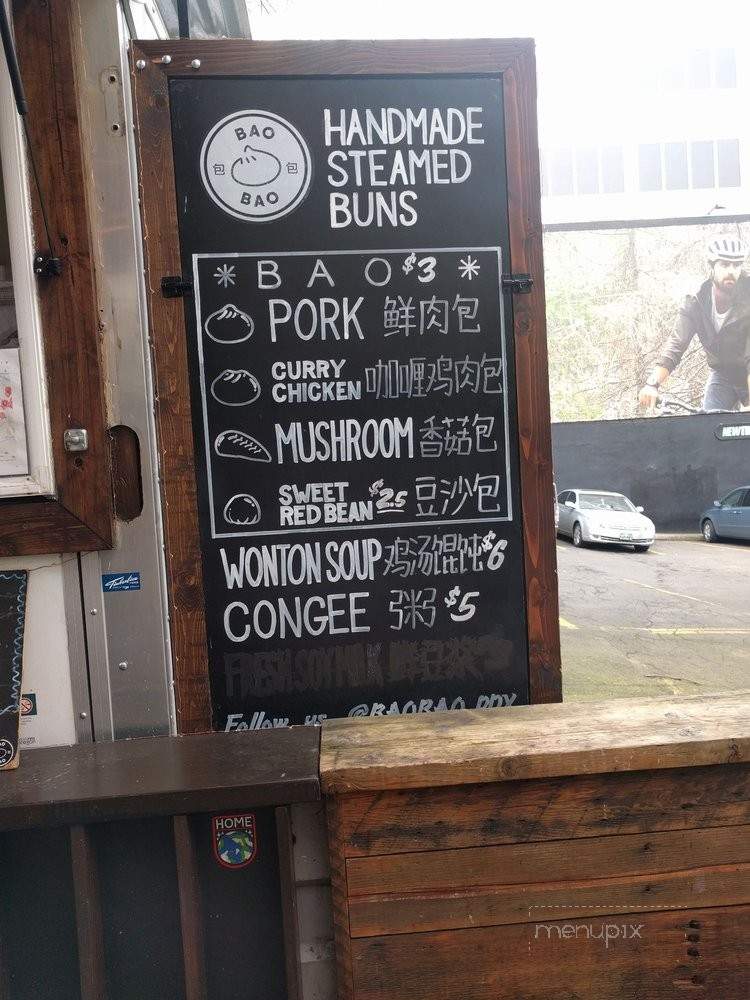 BAO
包 包
BAO
HANDMADE
STEAMED
BUNS
* BAO $3 *
PORK 鲜肉包
CURRY
CHICKEN 咖喱鸡肉包
MUSHROOM 香菇包
SWEET
RED BEAN $2.5 豆沙包
WONTON SOUP 鸡汤馄饨 $6
CONGEE 粥 $5
FRESH SOY MILK
Follow us @BAOBAO.PDX
HOME
menupix